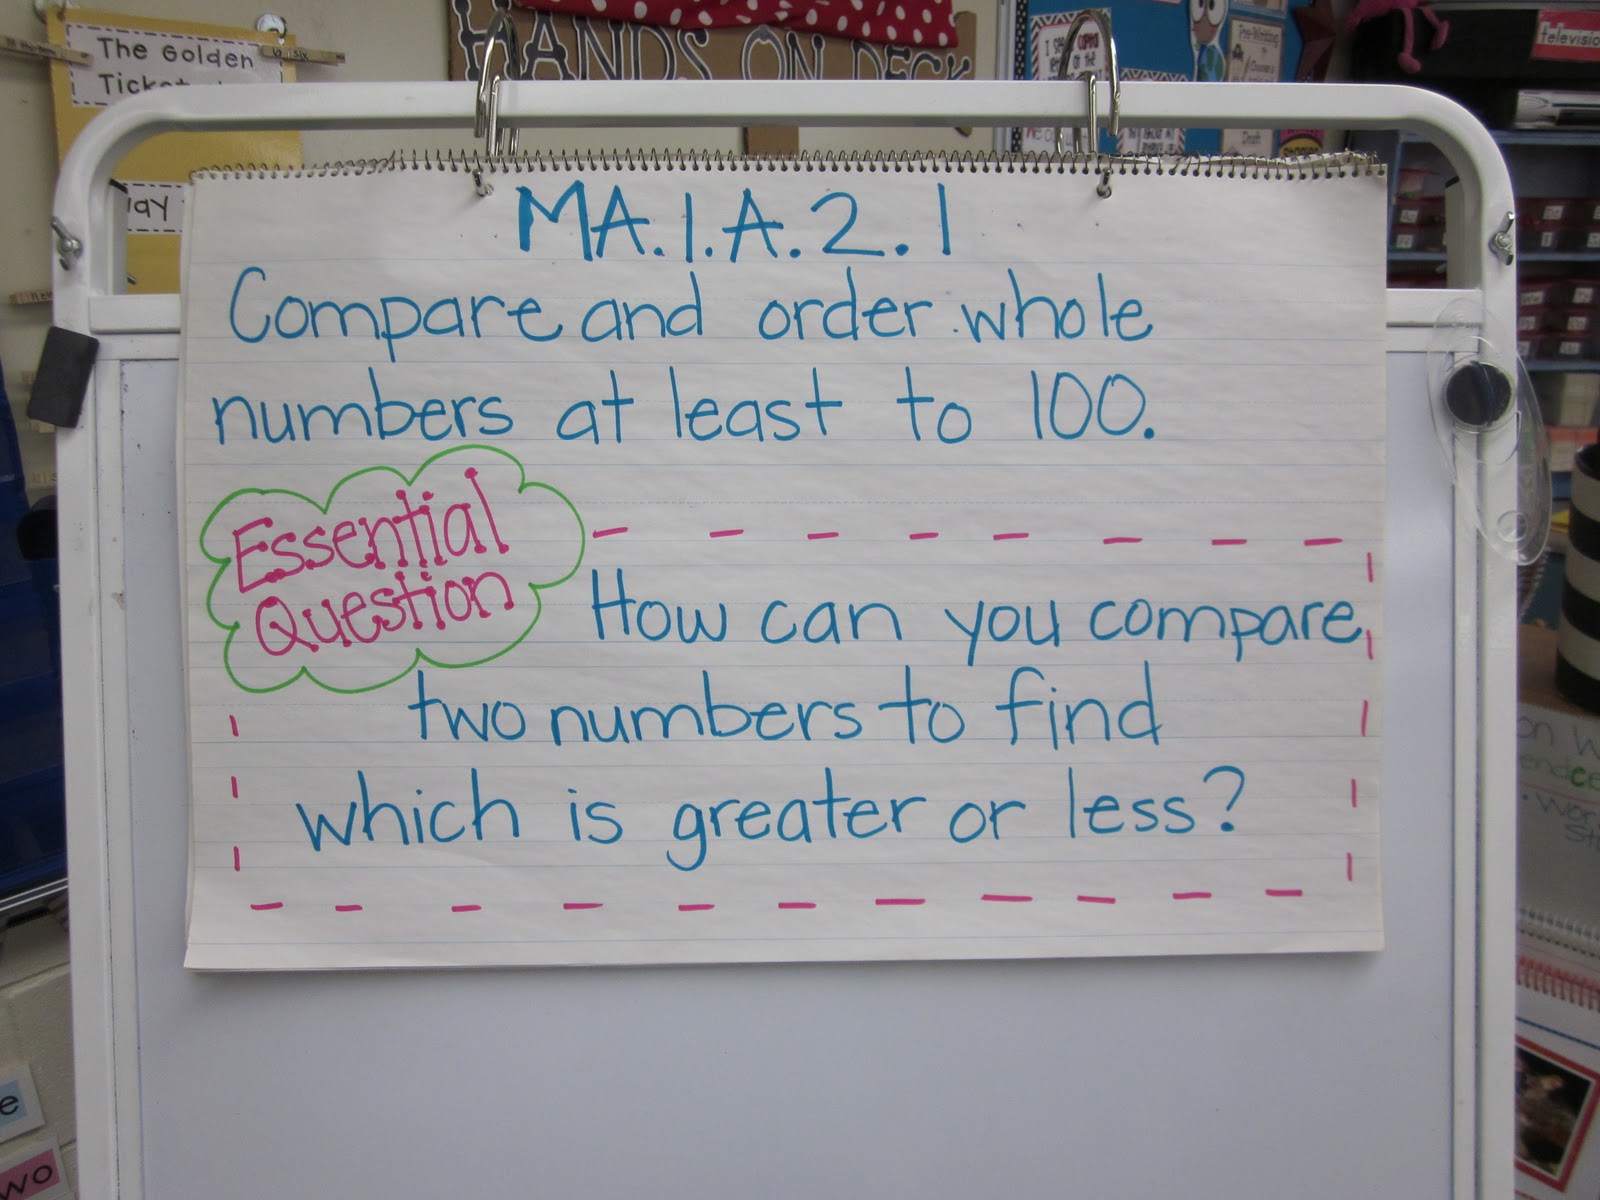 The Golden
HANDS ON DECK
television
MA.1.A.2.1
Compare and order whole
numbers at least to 100.
Essential
Question
How can you compare
two numbers to find
which is greater or less?